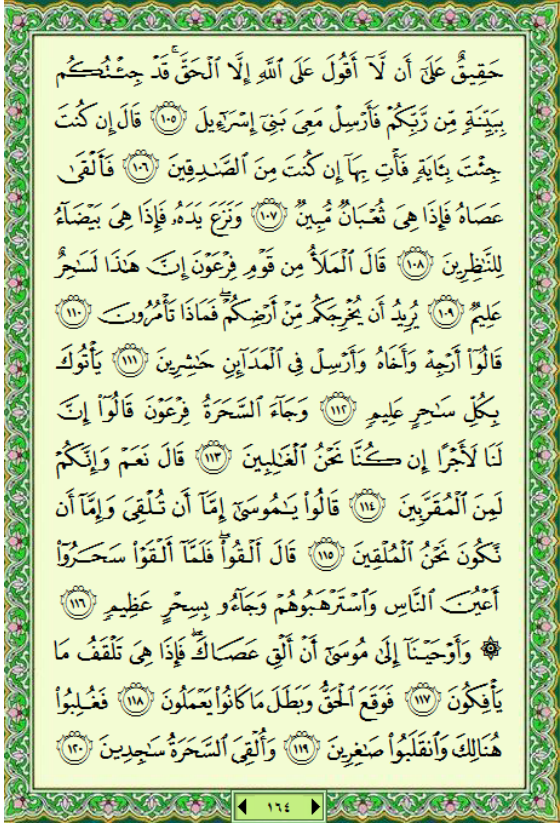 حَقِيقٌ عَلَىٰٓ أَن لَّآ أَقُولَ عَلَى ٱللَّهِ إِلَّا ٱلْحَقَّ ۚ قَدْ جِئْتُكُم
بِبَيِّنَةٍ مِّن رَّبِّكُمْ فَأَرْسِلْ مَعِىَ بَنِىٓ إِسْرَٰٓءِيلَ ١٠٥ قَالَ إِن كُنتَ
جِئْتَ بِـَٔايَةٍ فَأْتِ بِهَآ إِن كُنتَ مِنَ ٱلصَّـٰدِقِينَ ١٠٦ فَأَلْقَىٰ
عَصَاهُ فَإِذَا هِىَ ثُعْبَانٌ مُّبِينٌ ١٠٧ وَنَزَعَ يَدَهُۥ فَإِذَا هِىَ بَيْضَآءُ
لِلنَّـٰظِرِينَ ١٠٨ قَالَ ٱلْمَلَأُ مِن قَوْمِ فِرْعَوْنَ إِنَّ هَـٰذَا لَسَـٰحِرٌ
عَلِيمٌ ١٠٩ يُرِيدُ أَن يُخْرِجَكُم مِّنْ أَرْضِكُمْ ۖ فَمَاذَا تَأْمُرُونَ ١١٠
قَالُوٓا۟ أَرْجِهْ وَأَخَاهُ وَأَرْسِلْ فِى ٱلْمَدَآئِنِ حَـٰشِرِينَ ١١١ يَأْتُوكَ
بِكُلِّ سَـٰحِرٍ عَلِيمٍ ١١٢ وَجَآءَ ٱلسَّحَرَةُ فِرْعَوْنَ قَالُوٓا۟ إِنَّ
لَنَا لَأَجْرًا إِن كُنَّا نَحْنُ ٱلْغَـٰلِبِينَ ١١٣ قَالَ نَعَمْ وَإِنَّكُمْ
لَمِنَ ٱلْمُقَرَّبِينَ ١١٤ قَالُوا۟ يَـٰمُوسَىٰٓ إِمَّآ أَن تُلْقِىَ وَإِمَّآ أَن
نَّكُونَ نَحْنُ ٱلْمُلْقِينَ ١١٥ قَالَ أَلْقُوا۟ ۖ فَلَمَّآ أَلْقَوْا۟ سَحَرُوٓا۟
أَعْيُنَ ٱلنَّاسِ وَٱسْتَرْهَبُوهُمْ وَجَآءُو بِسِحْرٍ عَظِيمٍ ١١٦
۞ وَأَوْحَيْنَآ إِلَىٰ مُوسَىٰٓ أَنْ أَلْقِ عَصَاكَ ۖ فَإِذَا هِىَ تَلْقَفُ مَا
يَأْفِكُونَ ١١٧ فَوَقَعَ ٱلْحَقُّ وَبَطَلَ مَا كَانُوا۟ يَعْمَلُونَ ١١٨ فَغُلِبُوا۟
هُنَالِكَ وَٱنقَلَبُوا۟ صَـٰغِرِينَ ١١٩ وَأُلْقِىَ ٱلسَّحَرَةُ سَـٰجِدِينَ ١٢٠
١٦٤